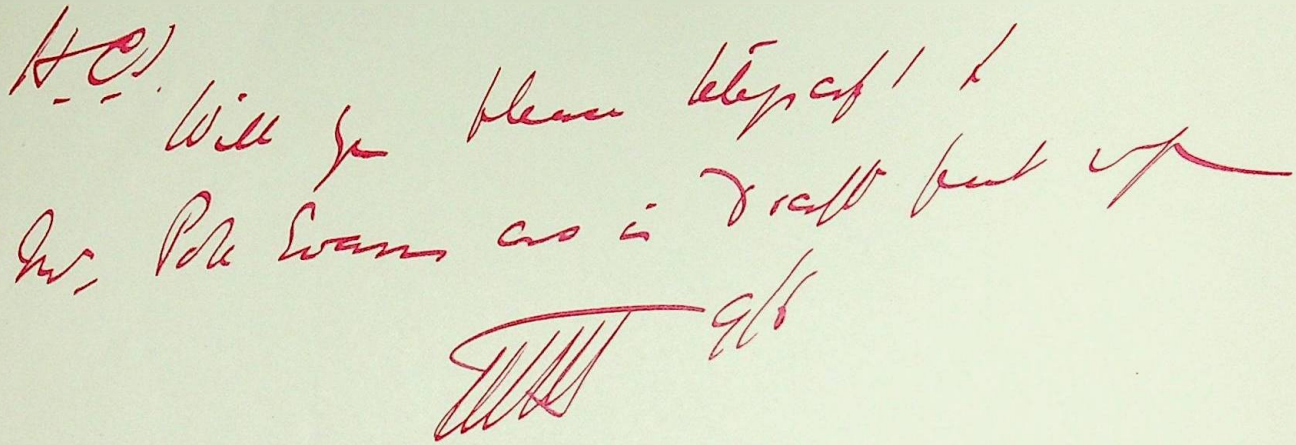 H.C.S.
Will you please telegraph to
Mr. Pole Evans as in draft put up
9/6